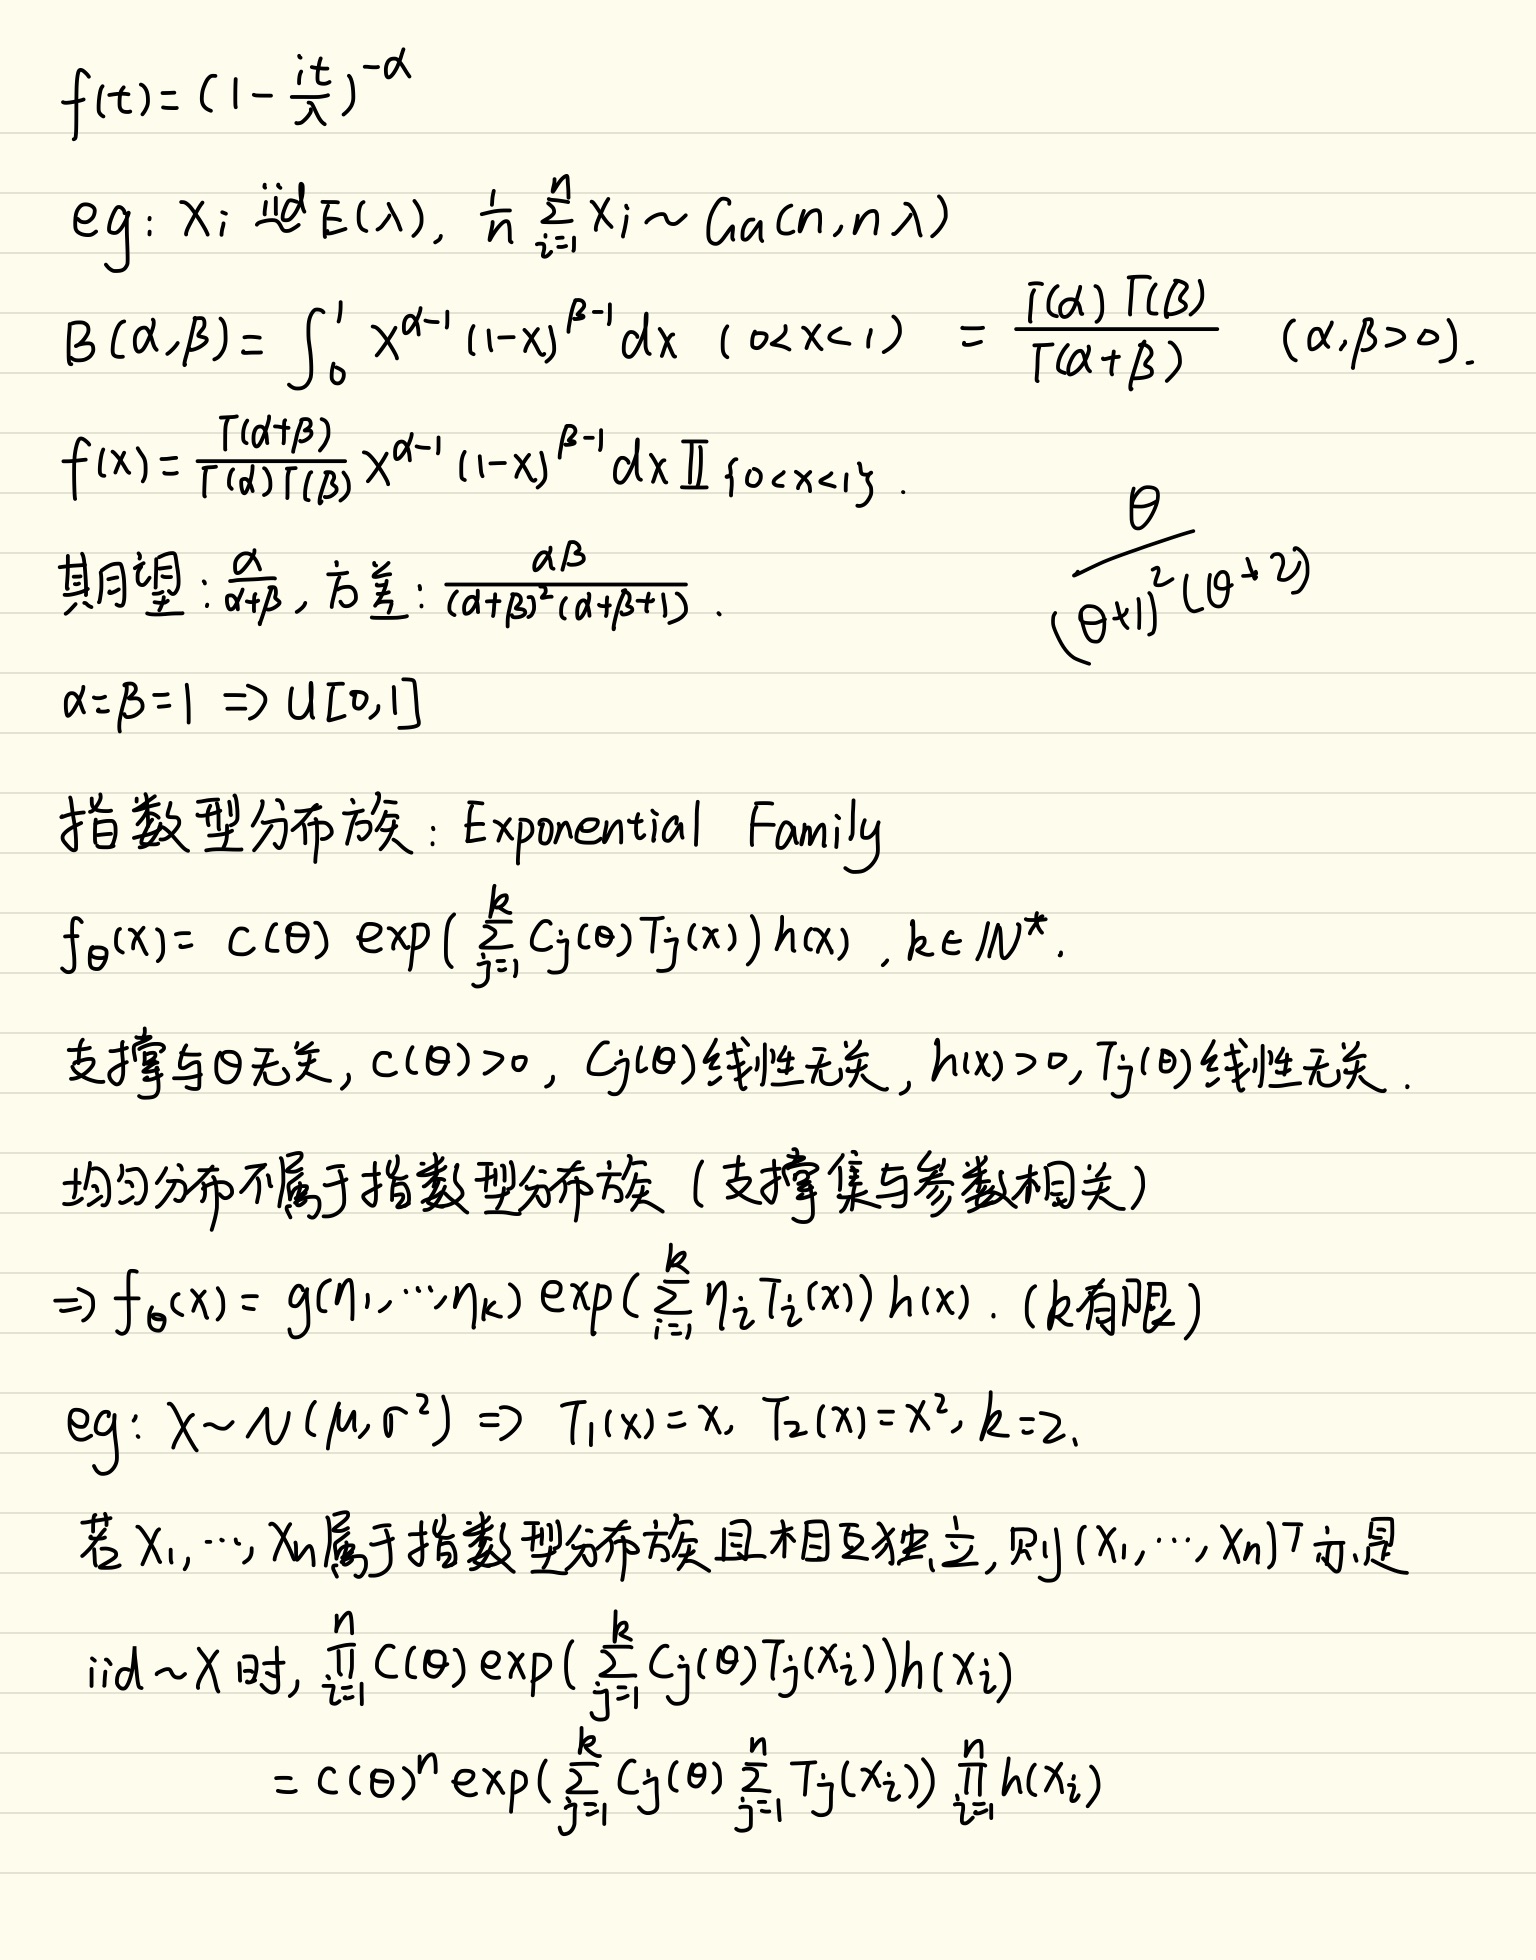 f(t) = (1 - it/λ)^{-α}
eg: Xi iid~ E(λ), 1/n ∑_{i=1}^{n} Xi ~ Ga(n, nλ)
B(α,β) = ∫_0^1 x^{α-1} (1-x)^{β-1} dx (0<x<1) = Γ(α)Γ(β)/Γ(α+β) (α,β>0).
f(x) = Γ(α+β)/(Γ(α)Γ(β)) x^{α-1} (1-x)^{β-1} dx 𝕀_{\{0<x<1\}}.
期望: α/(α+β), 方差: αβ/((α+β)^2(α+β+1)).
θ/((θ+1)^2(θ+2))
α=β=1 => U[0,1]
指数型分布族: Exponential Family
f_θ(x) = c(θ) exp(∑_{j=1}^{k} Cj(θ)Tj(x)) h(x), k∈ℕ*.
支撑与θ无关, c(θ)>0, Cj(θ)线性无关, h(x)>0, Tj(θ)线性无关.
均匀分布不属于指数型分布族 (支撑集与参数相关)
=> f_θ(x) = g(η1,⋯,ηk) exp(∑_{i=1}^{k} ηi Ti(x)) h(x). (k有限)
eg: X~N(μ,σ²) => T1(x)=x, T2(x)=x², k=2.
若X1,⋯,Xn属于指数型分布族且相互独立, 则(X1,⋯,Xn)^T亦是
iid~X时, ∏_{i=1}^{n} C(θ) exp(∑_{j=1}^{k} Cj(θ)Tj(Xi)) h(Xi)
= c(θ)^n exp(∑_{j=1}^{k} Cj(θ) ∑_{j=1}^{n} Tj(Xi)) ∏_{i=1}^{n} h(Xi)